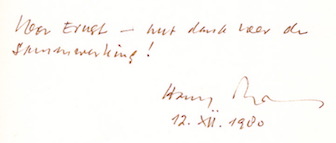 Voor Ernst – met dank voor de
samenwerking!
Harry
12. XII. 1980